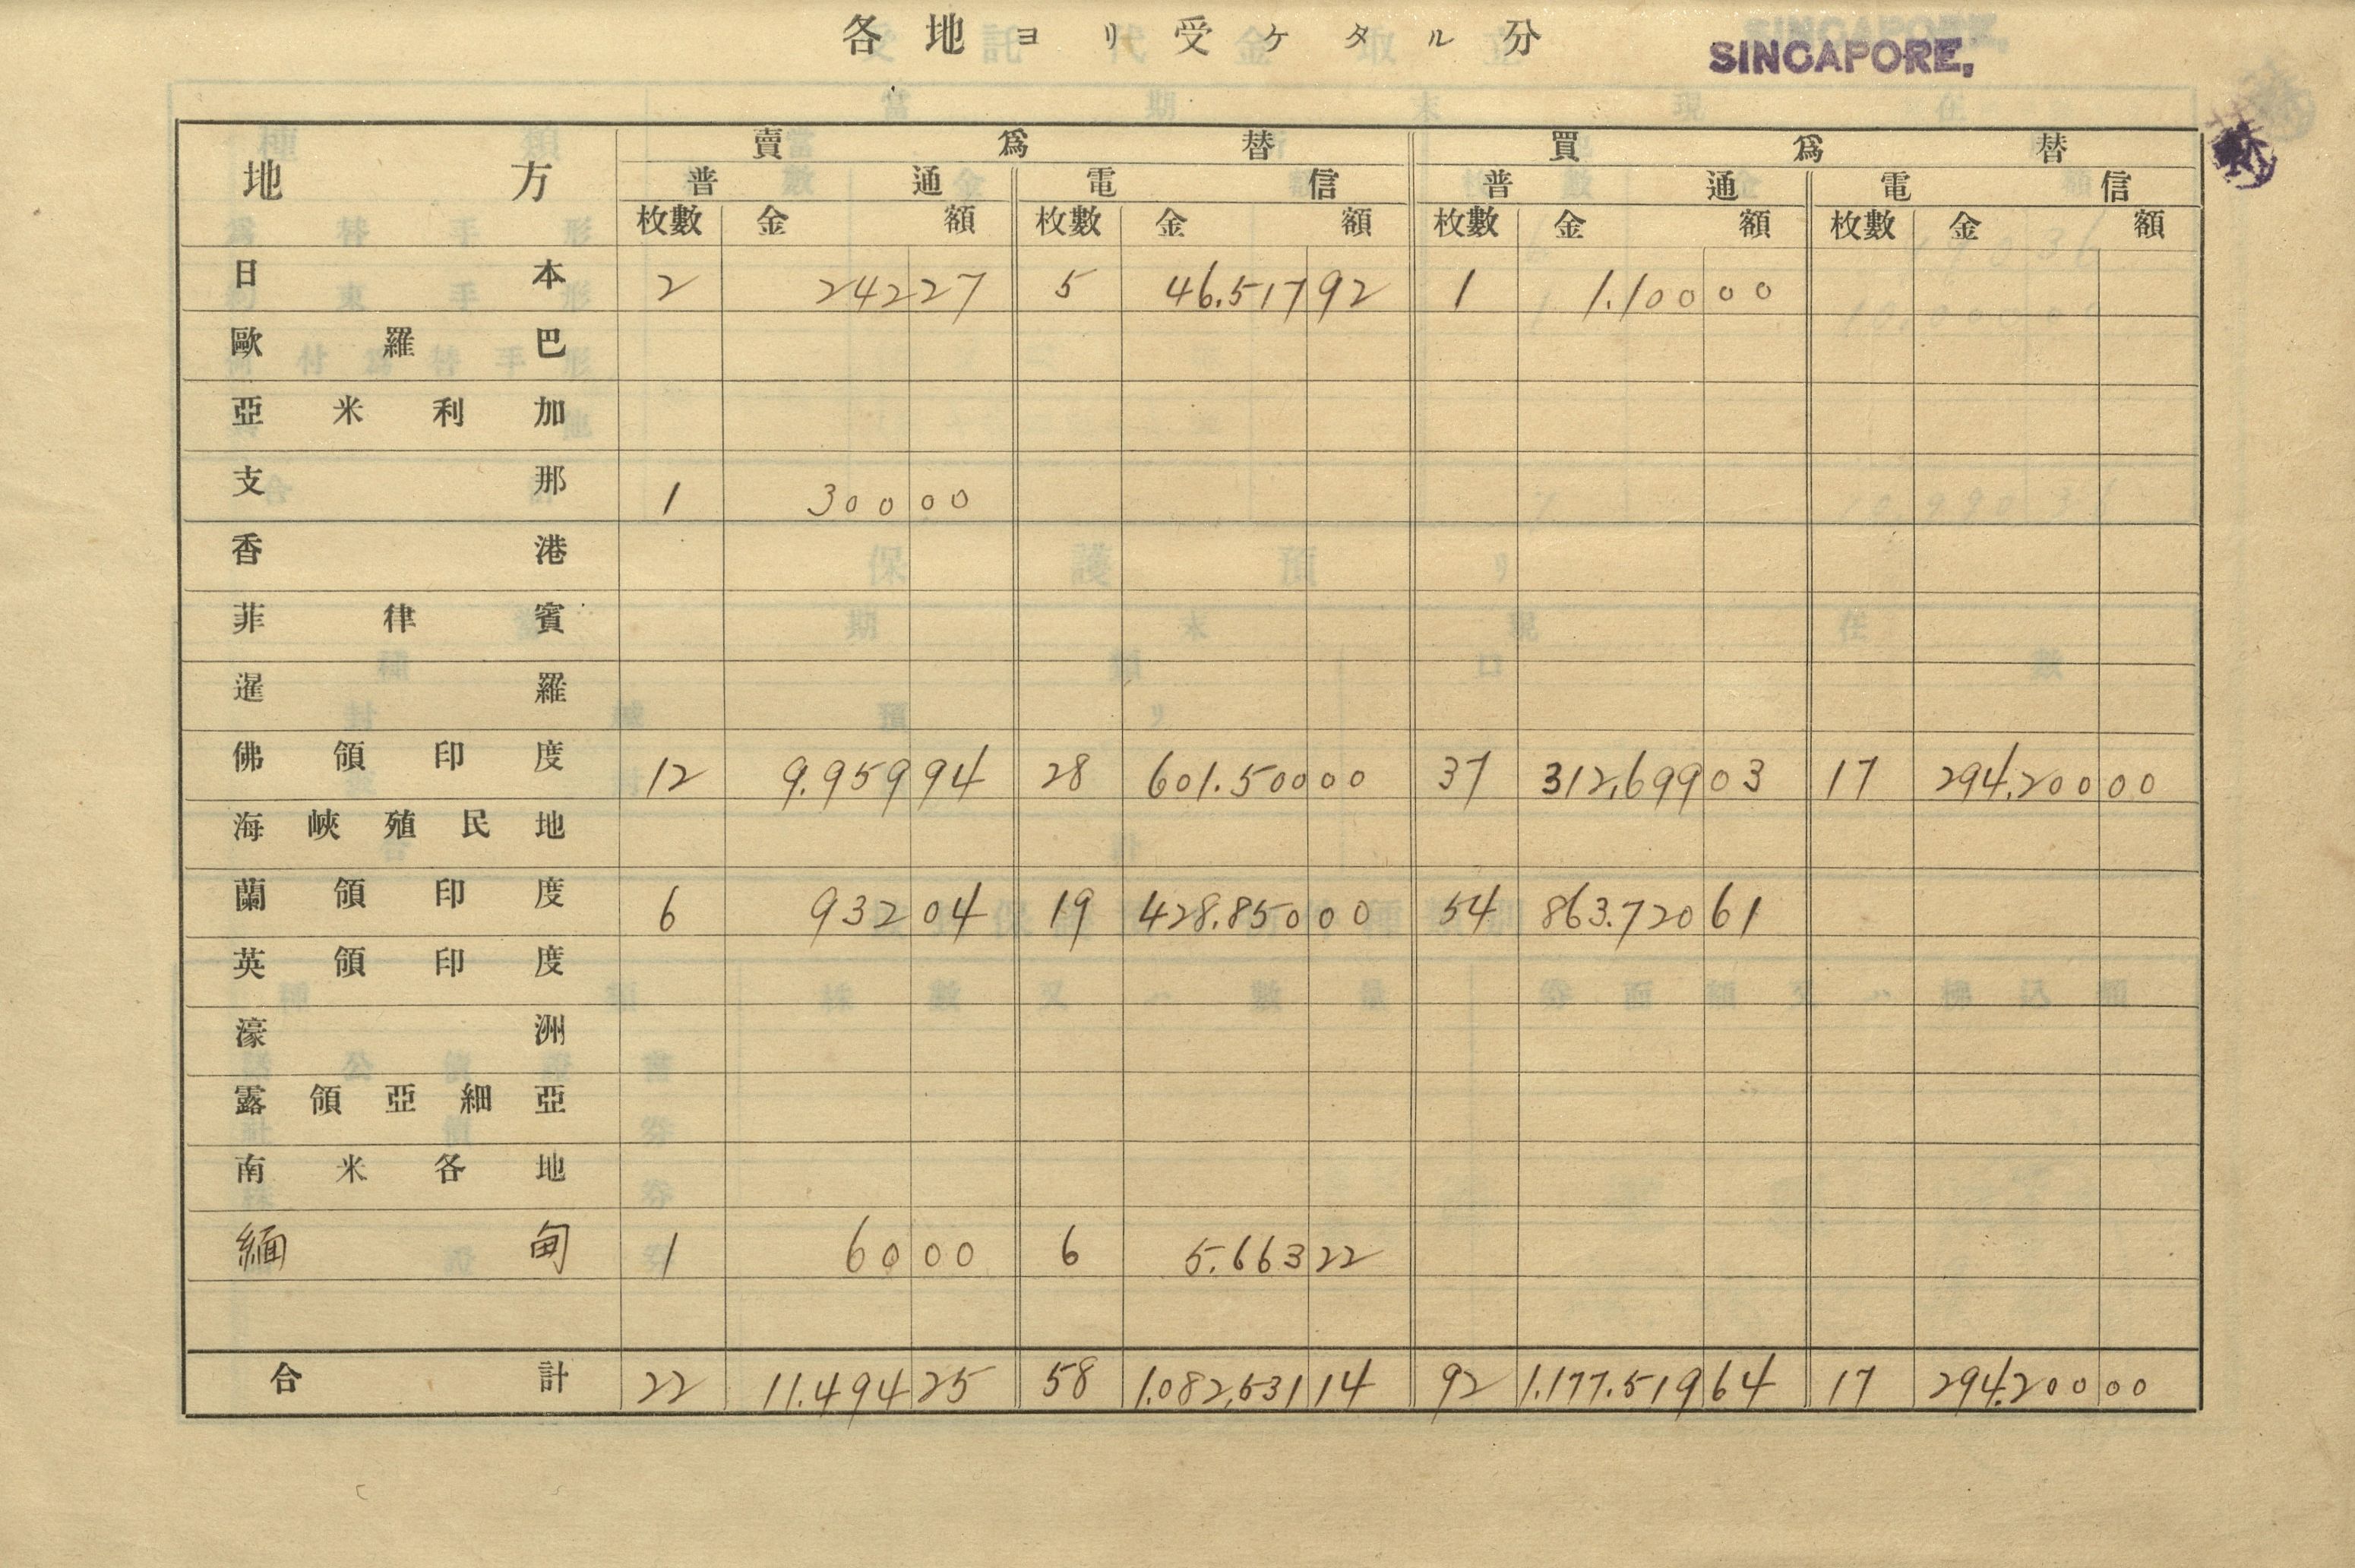 各地ヨリ受ケタル分 SINGAPORE,
地方 賣爲替 買爲替
普通 電信 普通 電信
枚數 金額 枚數 金額 枚數 金額 枚數 金額
日本 2 242 27 5 46.517 92 1 1.100 00
歐羅巴
亞米利加
支那 1 300 00
香港
菲律賓
暹羅
佛領印度 12 9.959 94 28 601.500 00 37 312.699 03 17 294.200 00
海峽殖民地
蘭領印度 6 932 04 19 428.850 00 54 863.720 61
英領印度
濠洲
露領亞細亞
南米各地
緬甸 1 60 00 6 5.663 22
合計 22 11.494 25 58 1.082.531 14 92 1.177.519 64 17 294.200 00